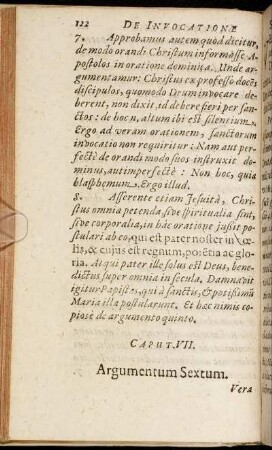 122 DE INVOCATIONE
7. Approbamus autem quod dicitur,
de modo orandi Christum informasse A-
postolos in oratione dominica. Unde ar-
gumentamur: Christus ex professo docẽs
discipulos, quomodo Deum invocare de-
berent, non dixit, id debere fieri per san-
ctos: de hoc n. altum ibi est silentium.
Ergo ad veram orationem, sanctorum
invocatio non requiritur: Nam aut per-
fectè de orandi modo suos instruxit do-
minus, aut imperfectè: Non hoc, quia
blasphemum. Ergo illud.
8. Asserente etiam Jesuitâ, Chri-
stus omnia petenda sive spiritualia sint,
sive corporalia, in hâc oratione jussit po-
stulari ab eo, qui est pater noster in Cœ-
lis, & cujus est regnum, potentia ac glo-
ria. At qui pater ille solus est Deus, bene-
dictus super omnia in secula. Damnavit
igitur Papistas, qui à sanctis, & potissimũ
Maria illa postularunt. Et hæc nimis co-
piosè de argumento quinto.
CAPUT. VII.
Argumentum Sextum.
Vera